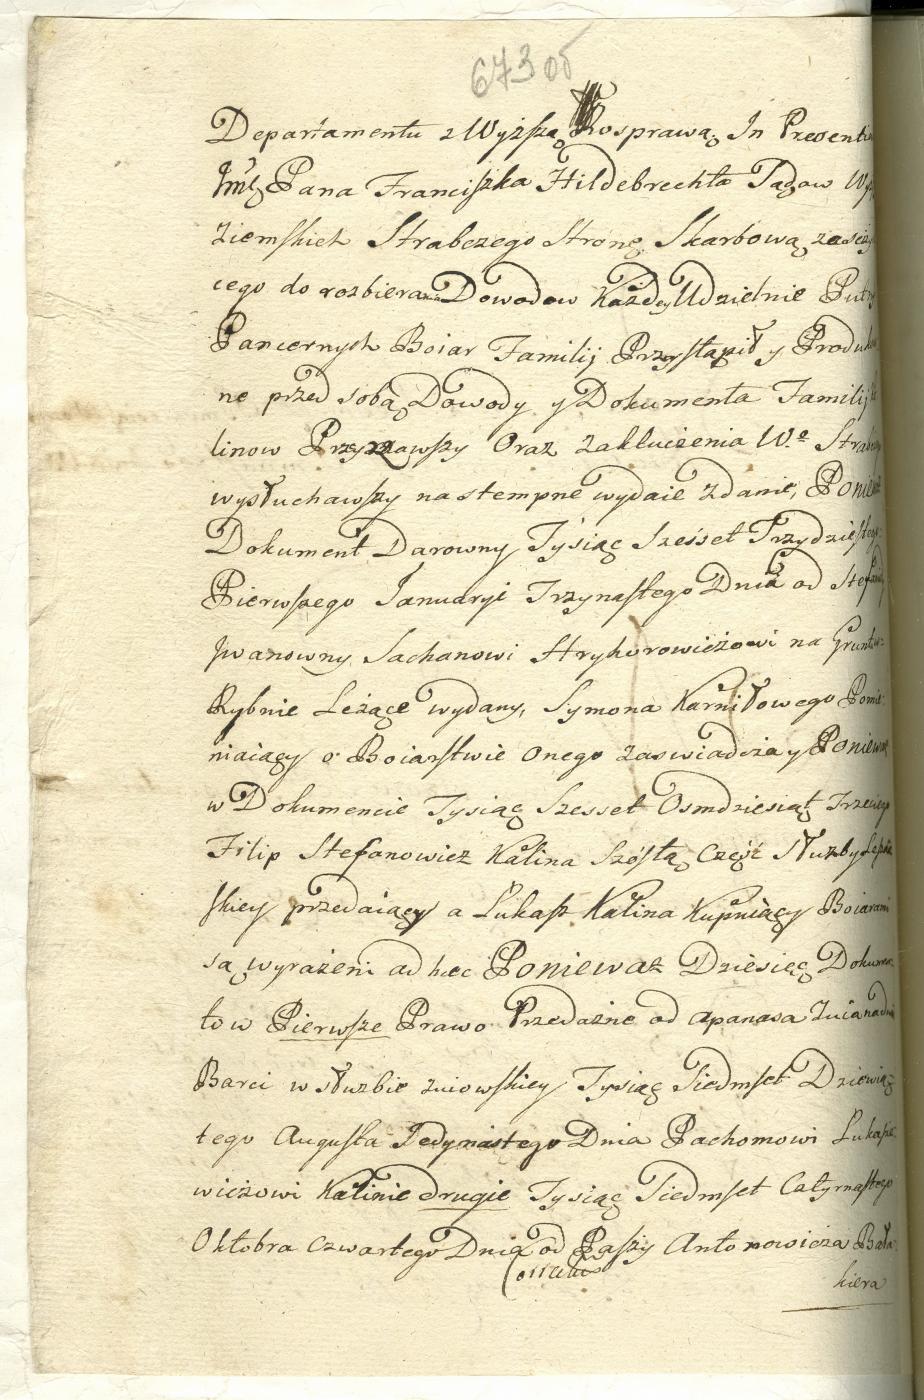 673 об
Departamentu z Wyższą Rosprawą In Prezenti
Jmć Pana Franciszka Hildebrechta Sądow
Ziemskich Strabczego Stronę Skarbową
cego do rozbierania Dowodow Każdey Udzielnie
Pancernych Boiar Familij Przystąpił y
ne przed sobą Dowody y Dokumenta Familij
linow Oraz Zakluczenia Wo
wysłuchawszy nastempne wydaie Zdanie, Poniewaz
Dokument Darowny Tysiąc Szesset Trzydziestego
Pierwszego Januaryi Trzynastego Dnia od
Jwanowny Sachanowi Hryhorowiczowi na
Rybnie Leżące wydany, Symona Karniłowego
niaiący o Boiarstwie onego Zaswiadcza y Poniewaz
w Dokumencie Tysiąc Szesset Osmdziesiąt Trzeciego
Filip Stefanowicz Kalina Szóstą Część Służby
skiey przedaiący a Łukasz Kalina Kupuiący Boiarami
są wyrażeni ad hoc Poniewaz Dziesięć
tow Pierwsze Prawo Przedażne od Apanasa
Barci w służbie Tysiąc Siedmset
tego Augusta Jedynastego Dnia Pachomowi
wiczowi Kalinie drugie Tysiąc Siedmset
Oktobra Czwartego Dnia od Paszy Antonowicza Bała
kiera